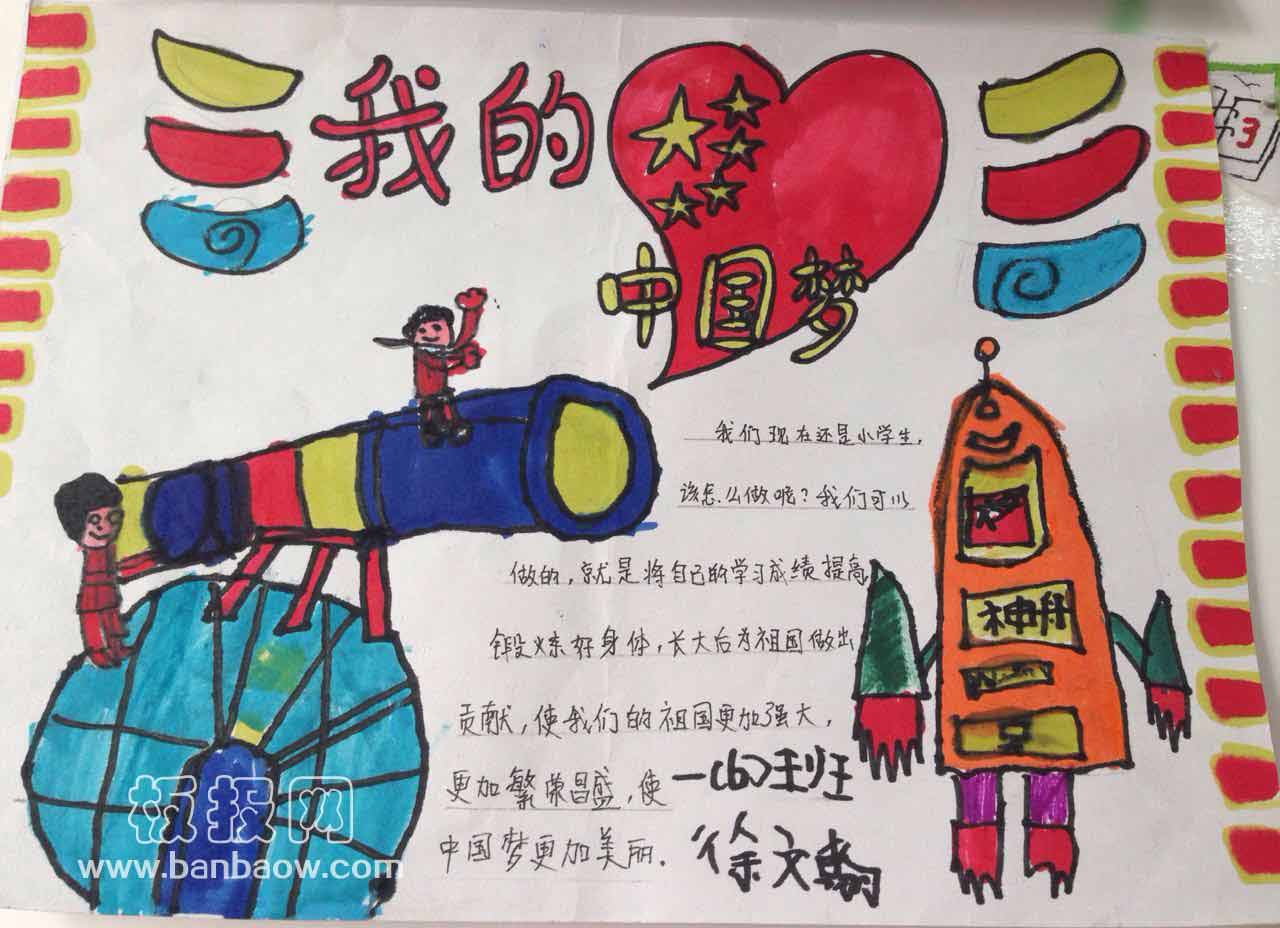 我的
中国梦
我们现在还是小学生，
该怎么做呢？我们可以
做的，就是将自己的学习成绩提高
锻炼好身体，长大后为祖国做出
贡献，使我们的祖国更加强大，
更加繁荣昌盛，使
中国梦更加美丽．
一(6)班
徐文
神舟
板报网
www.banbaow.com